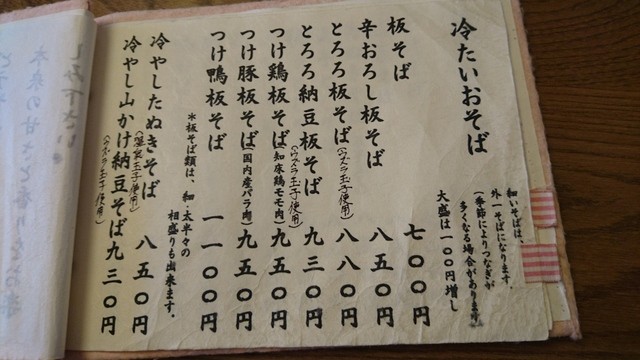 冷たいおそば
細いそばは、
外一そばになります。
(季節によりつなぎが
多くなる場合があります)
大盛は一〇〇円増し
板そば 七〇〇円
辛おろし板そば 八五〇円
とろろ板そば(ウズラ玉子使用) 八八〇円
とろろ納豆板そば(ウズラ玉子使用) 九三〇円
つけ鶏板そば(知床鶏モモ肉) 九五〇円
つけ豚板そば(国内産バラ肉) 九五〇円
つけ鴨板そば 一一〇〇円
*板そば類は、細・太半々の
相盛りも出来ます。
冷やしたぬきそば(温泉玉子使用) 八五〇円
冷やし山かけ納豆そば(ウズラ玉子使用) 九三〇円